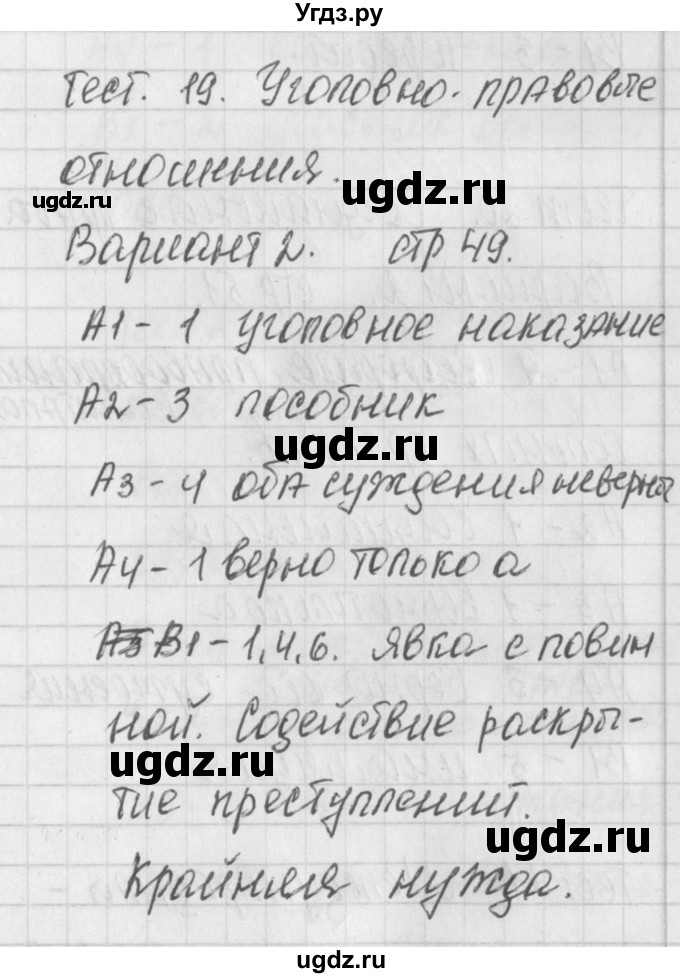 Угдз.ру
Тест. 19. Уголовно-правовые
отношения.
ugdz.ru
ugdz.ru
Вариант 2. стр 49.
ugdz.ru
А1 - 1 уголовное наказание
А2 - 3 пособник
ugdz.ru
А3 - 4 оба суждения неверны
ugdz.ru
А4 - 1 верно только а
В1 - 1,4,6. явка с повин
ной. Содействие раскры-
ugdz.ru
тие преступлений.
ugdz.ru
Крайняя нужда.
ugdz.ru